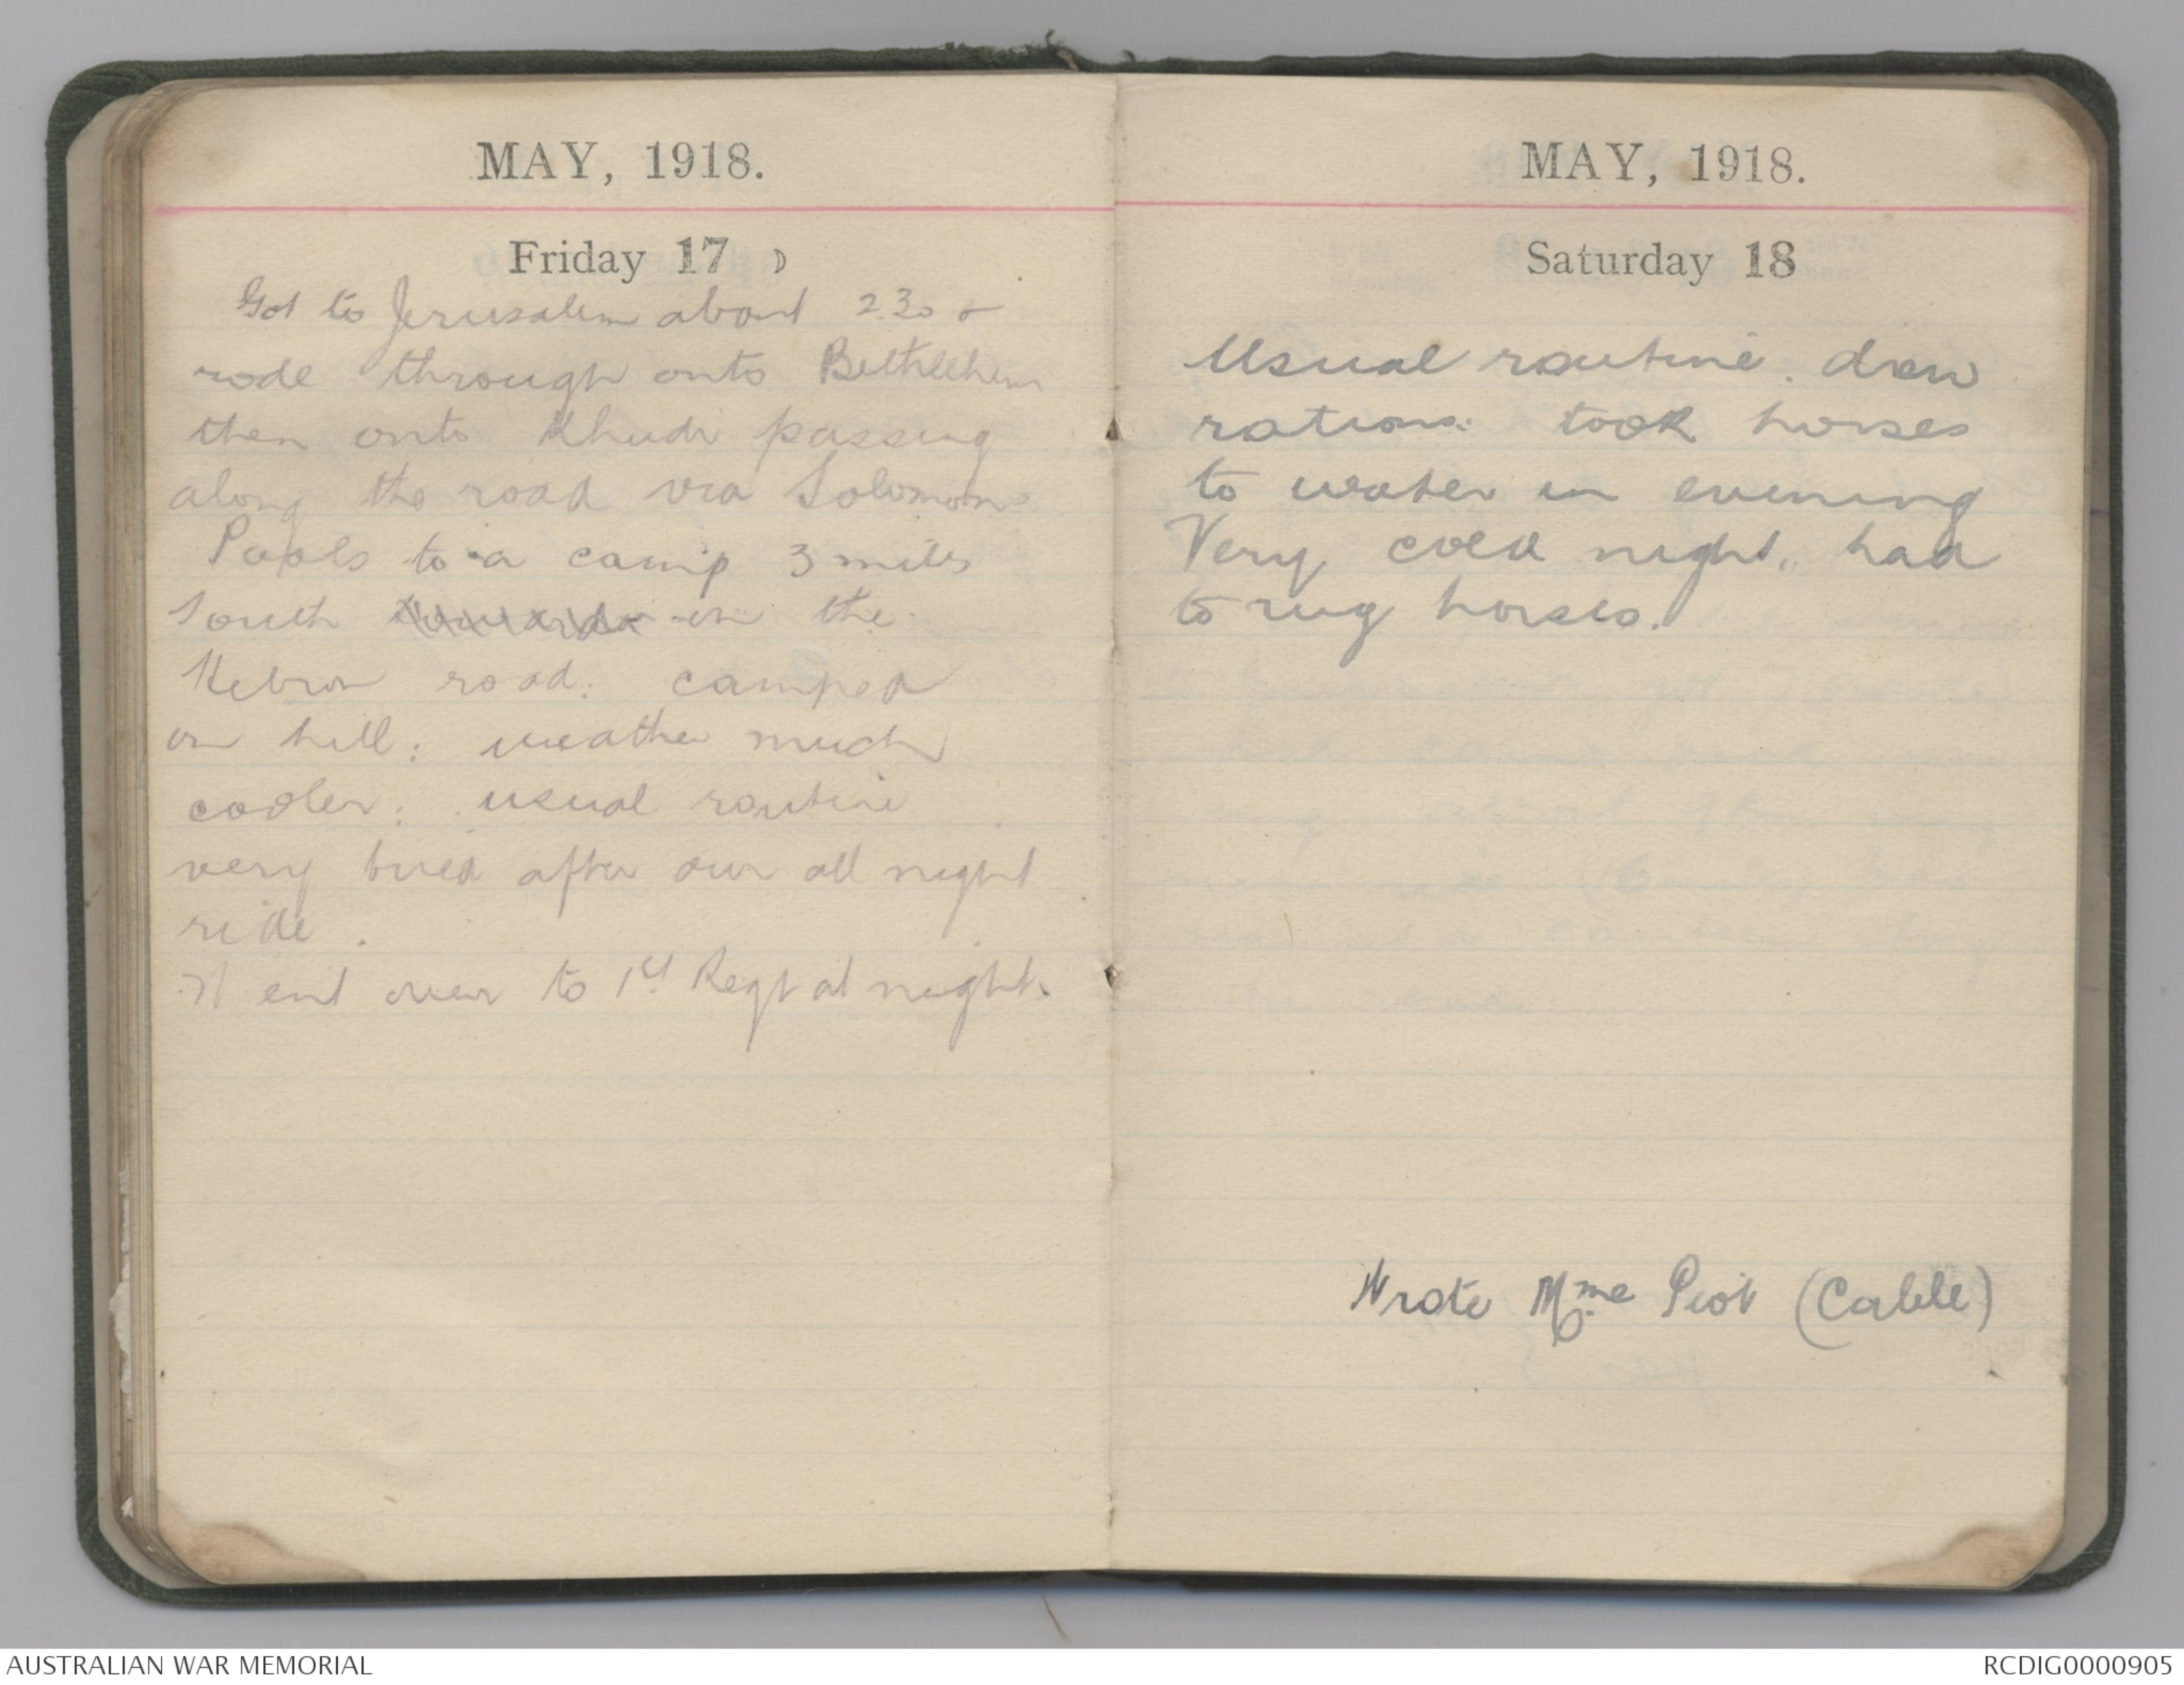 MAY, 1918.
Friday 17 ☽
Got to Jerusalem about 2.30 &
rode through onto Bethlehem
then onto Khudr passing
along the road via Solomons
Pools to a camp 3 miles
South towards on the
Hebron road: camped
on hill: weather much
cooler: usual routine
very tired after our all night
ride.
Went over to 1st Regt at night.
MAY, 1918.
Saturday 18
Usual routine. drew
rations: took horses
to water in evening
Very cold night. had
to rug horses.
Wrote Mme Piot (Cable)
AUSTRALIAN WAR MEMORIAL
RCDIG0000905